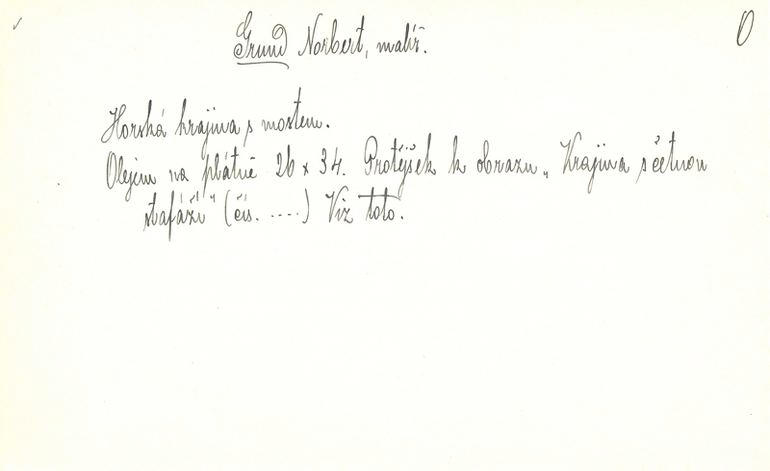 O
Grund Norbert, malíř.
Horská krajina s mostem.
Olejem na plátně 26 x 34. Protějšek k obrazu „Krajina s četnou
stafáží" (čís. ....) Viz toto.